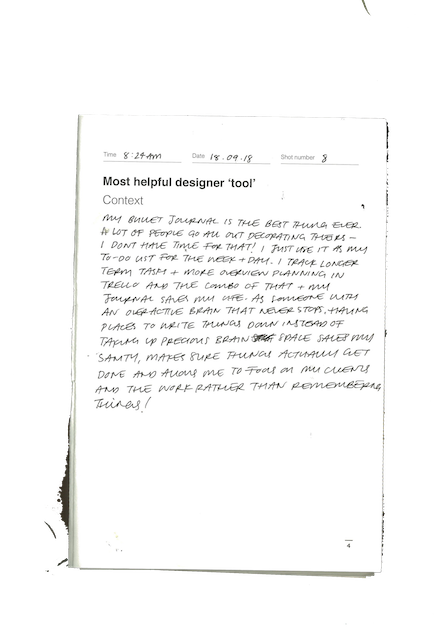 Time 8:24AM Date 18.09.18 Shot number 8
Most helpful designer 'tool'
Context
MY BULLET JOURNAL IS THE BEST THING EVER.
A LOT OF PEOPLE GO ALL OUT DECORATING THEIRS –
I DONT HAVE TIME FOR THAT! I JUST USE IT AS MY
TO-DO LIST FOR THE WEEK + DAY. I TRACK LONGER
TERM TASKS + MORE OVERVIEW PLANNING IN
TRELLO AND THE COMBO OF THAT + MY
JOURNAL SAVES MY LIFE. AS SOMEONE WITH
AN OVERACTIVE BRAIN THAT NEVER STOPS, HAVING
PLACES TO WRITE THINGS DOWN INSTEAD OF
TAKING UP PRECIOUS BRAIN SPACE SAVES MY
SANITY, MAKES SURE THINGS ACTUALLY GET
DONE AND ALLOWS ME TO FOCUS ON MY CLIENTS
AND THE WORK RATHER THAN REMEMBERING
THINGS!
4